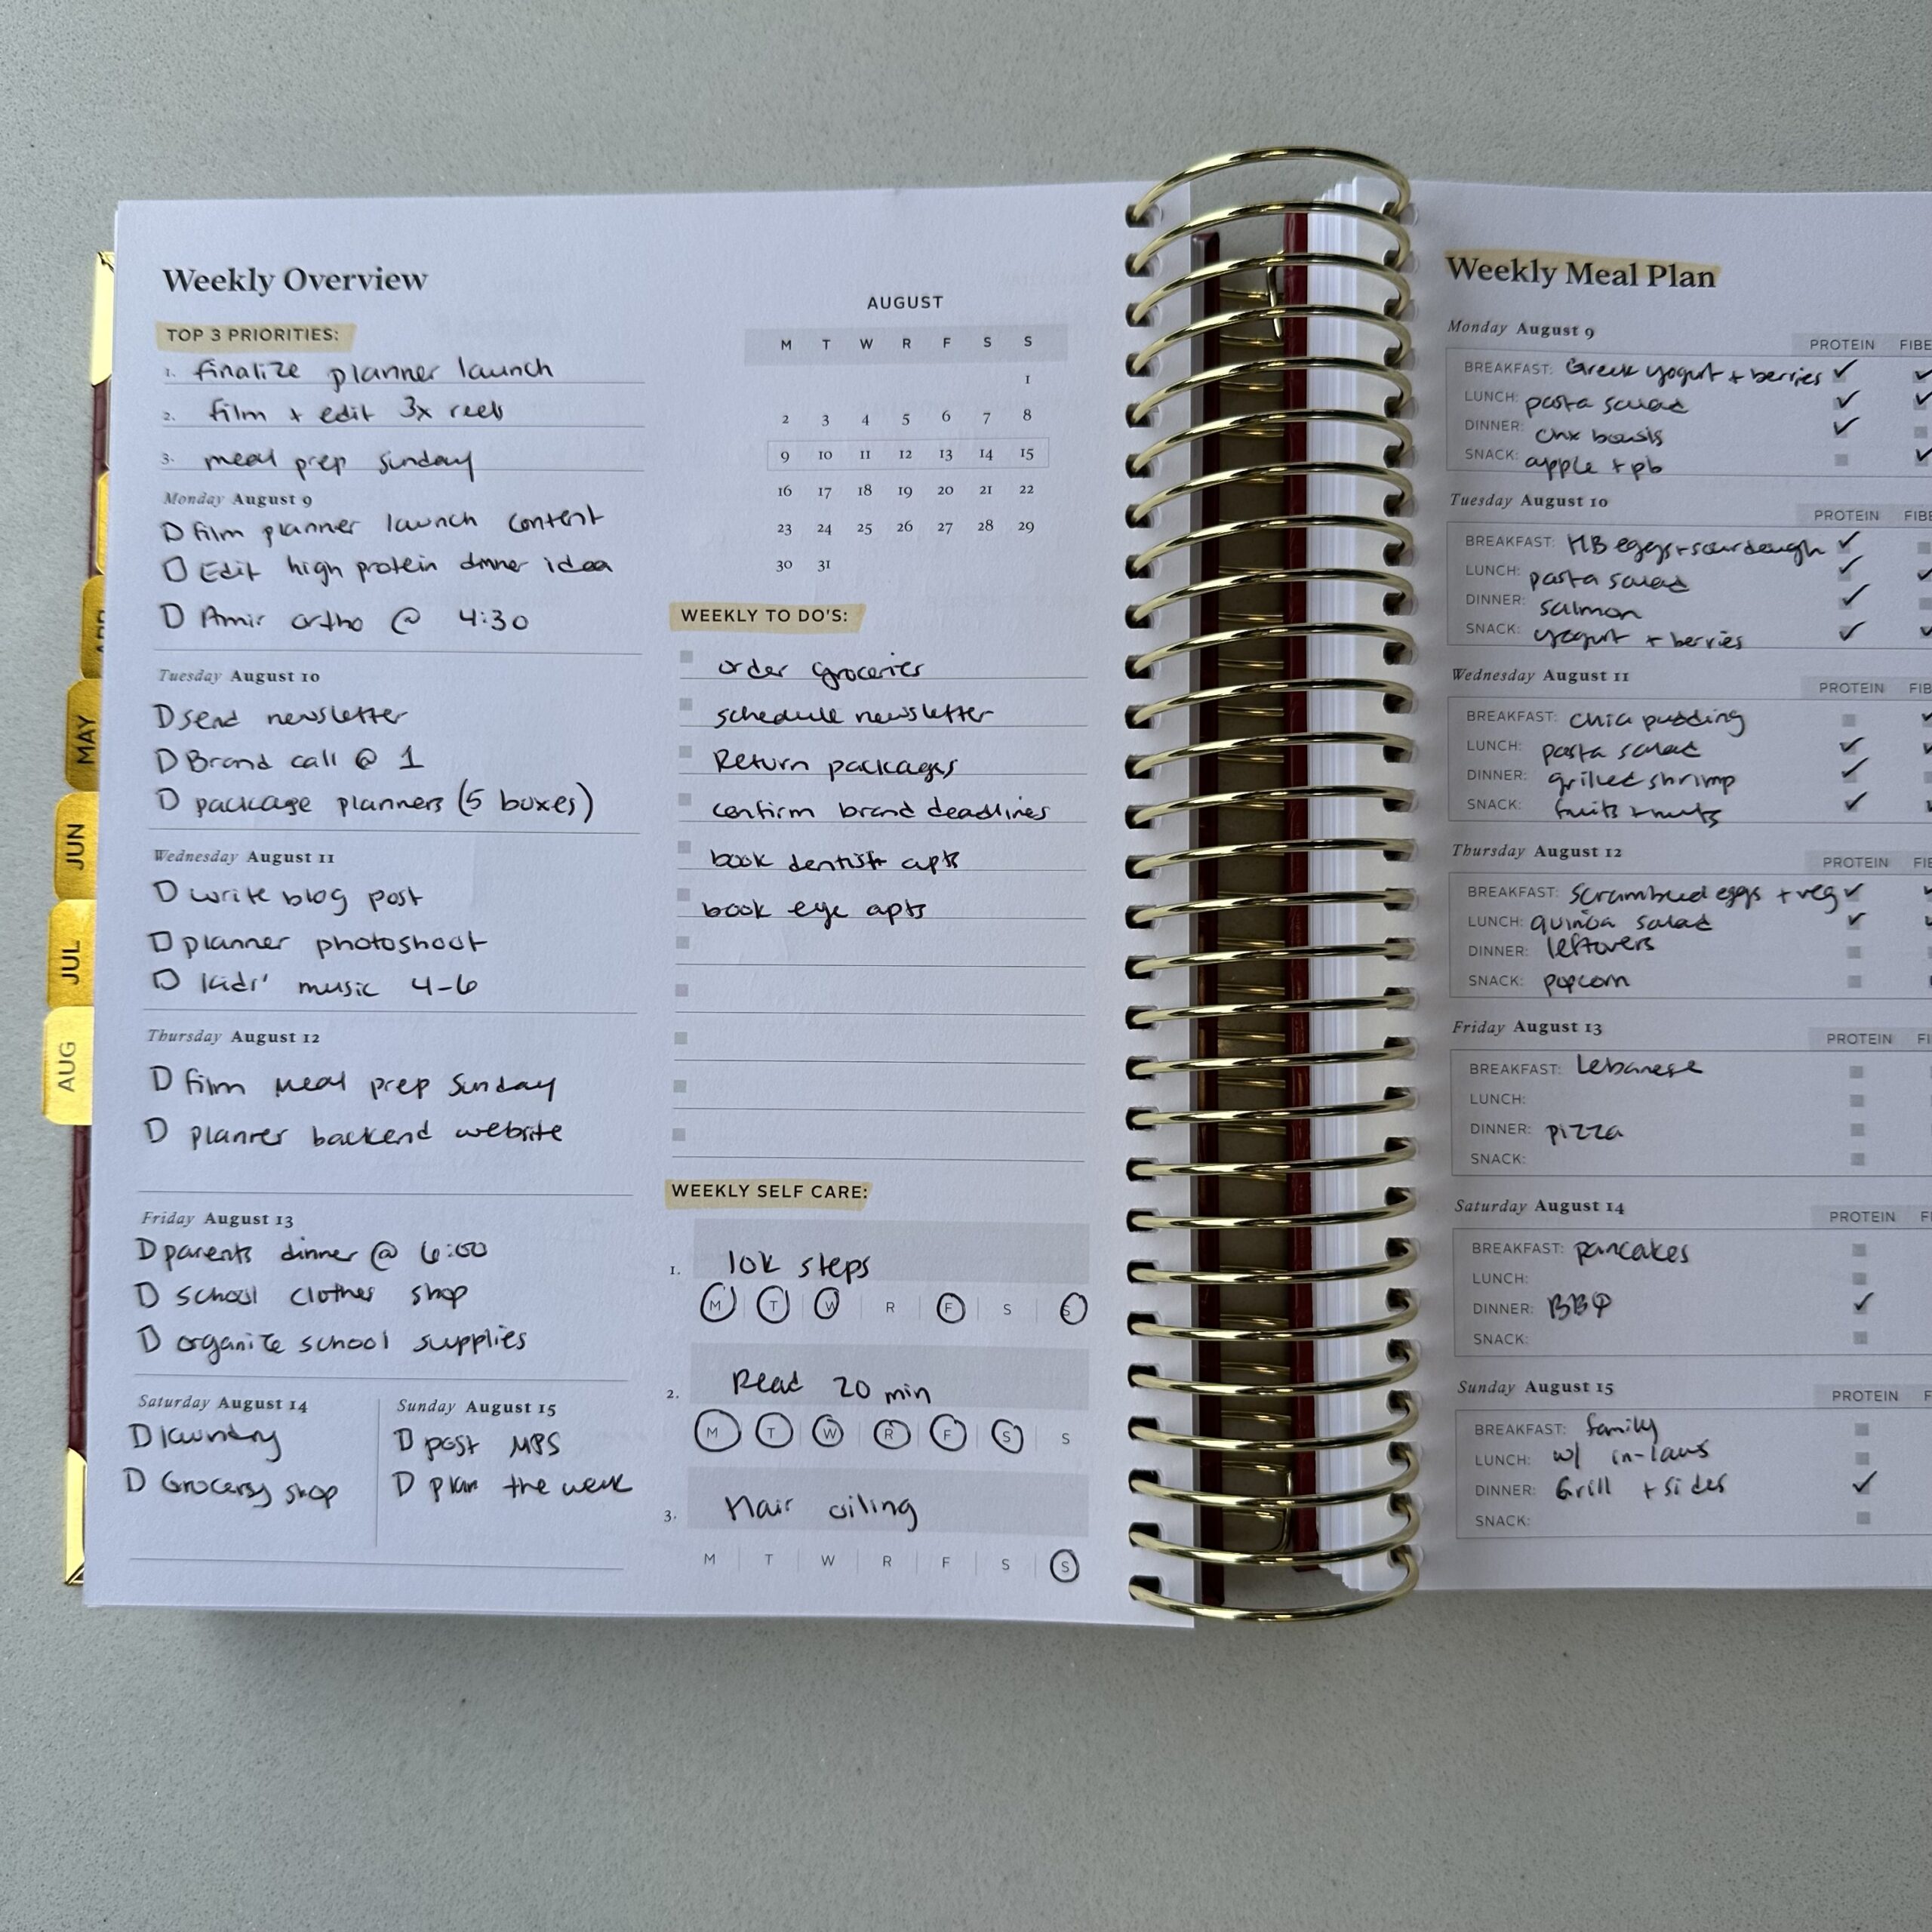 Weekly Overview
TOP 3 PRIORITIES:
1. finalize planner launch
2. film + edit 3x reels
3. meal prep sunday
Monday August 9
film planner launch content
Edit high protein dinner idea
Amir ortho @ 4:30
Tuesday August 10
send newsletter
Brand call @ 1
package planners (5 boxes)
Wednesday August 11
write blog post
planner photoshoot
kids' music 4-6
Thursday August 12
film meal prep Sunday
planner backend website
Friday August 13
parents dinner @ 6:00
school clothes shop
organize school supplies
Saturday August 14
laundry
Grocery shop
Sunday August 15
post MPS
plan the week
AUGUST
M T W R F S S
1
2 3 4 5 6 7 8
9 10 11 12 13 14 15
16 17 18 19 20 21 22
23 24 25 26 27 28 29
30 31
WEEKLY TO DO'S:
order groceries
schedule newsletter
Return packages
confirm brand deadlines
book dentist apts
book eye apts
WEEKLY SELF CARE:
1. 10k steps
M T W R F S S
2. Read 20 min
M T W R F S S
3. Hair oiling
M T W R F S S
MAY
JUN
JUL
AUG
Weekly Meal Plan
Monday August 9
PROTEIN FIBE
BREAKFAST: Greek yogurt + berries
LUNCH: pasta salad
DINNER: chx bowls
SNACK: apple + pb
Tuesday August 10
PROTEIN FIBE
BREAKFAST: HB eggs + sourdough
LUNCH: pasta salad
DINNER: salmon
SNACK: yogurt + berries
Wednesday August 11
PROTEIN FIB
BREAKFAST: chia pudding
LUNCH: pasta salad
DINNER: grilled shrimp
SNACK: fruits + nuts
Thursday August 12
PROTEIN FI
BREAKFAST: scrambled eggs + veg
LUNCH: quinoa salad
DINNER: leftovers
SNACK: popcorn
Friday August 13
PROTEIN FI
BREAKFAST: Lebanese
LUNCH:
DINNER: pizza
SNACK:
Saturday August 14
PROTEIN FI
BREAKFAST: pancakes
LUNCH:
DINNER: BBQ
SNACK:
Sunday August 15
PROTEIN F
BREAKFAST: family
LUNCH: w/ in-laws
DINNER: Grill + sides
SNACK: